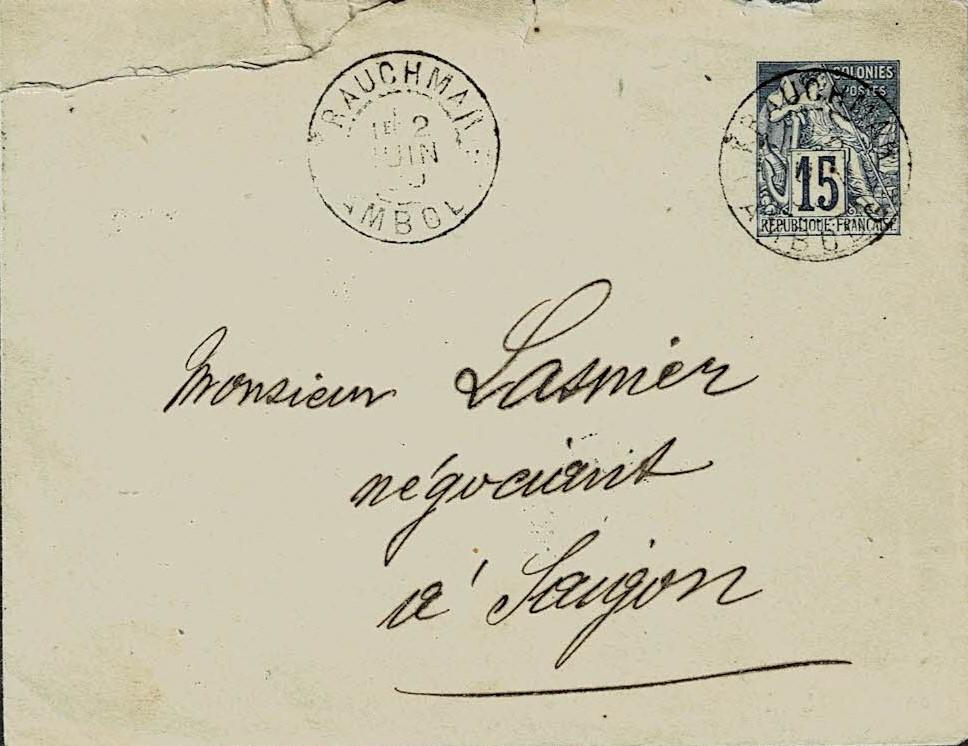 KRAUCHMAR
1ᴱ 2
JUIN
AMBOD
COLONIES
POSTES
15
RÉPUBLIQUE FRANÇAISE
KRAUCHMAR
AMBOD
Monsieur Lasmier
négociant
à Saigon